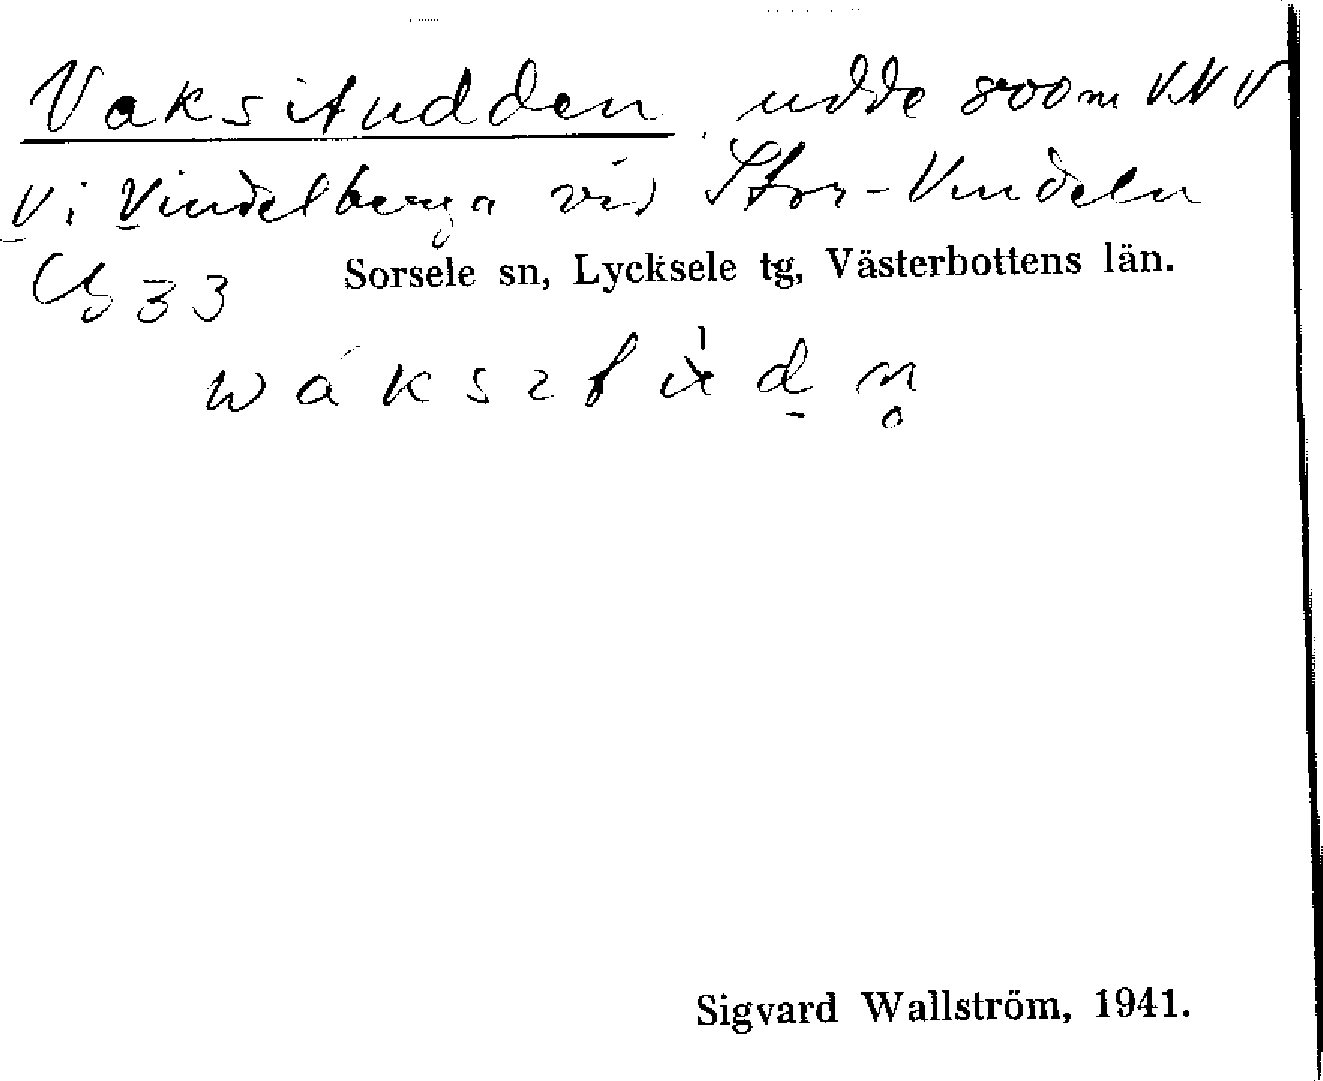 Vaksitudden udde 800 m VNV
V i Vindelberga vid Stor-Vindeln
33 Sorsele sn, Lycksele tg, Västerbottens län.
Sigvard Wallström, 1941.